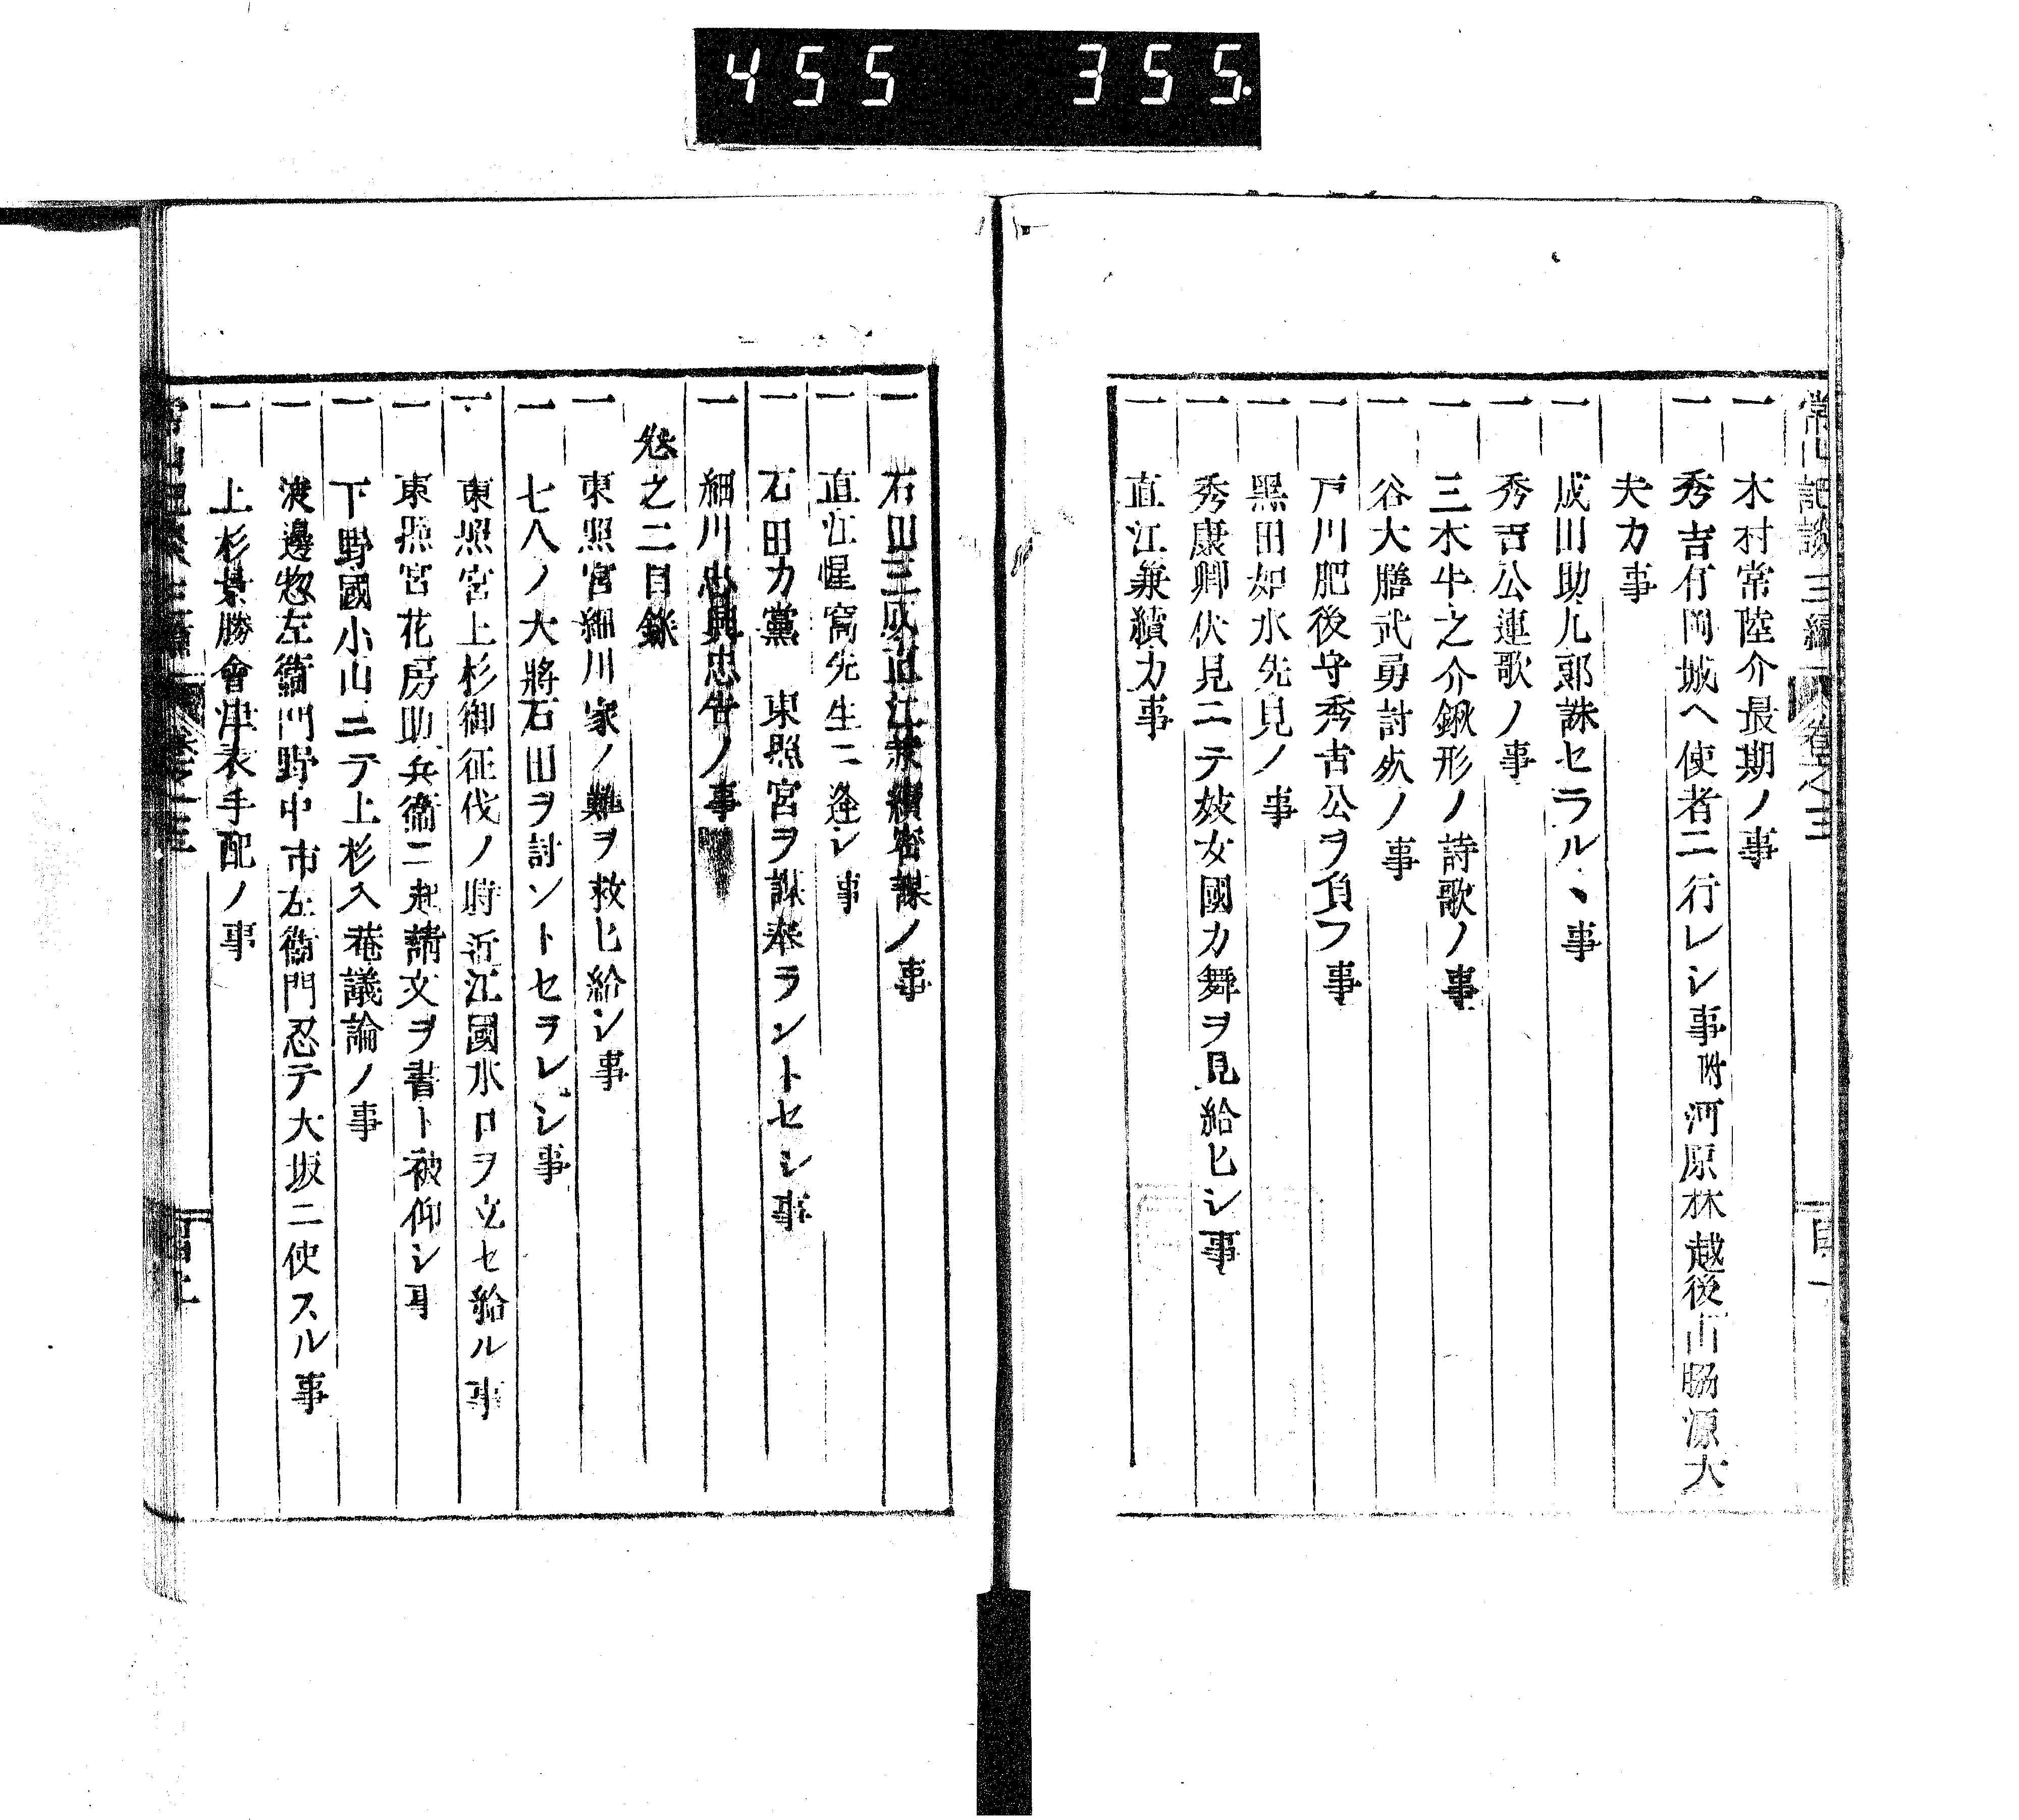 455 355.
一 木村常陸介最期ノ事
一 秀吉竹岡城ヘ使者ニ行レシ事附河原林越後山脇源大
夫カ事
一 成田助九郎誅セラル、事
一 秀吉公連歌ノ事
一 三木牛之介鍬形ノ詩歌ノ事
一 谷大膳武勇討死ノ事
一 戸川肥後守秀吉公ヲ負フ事
一 黒田如水先見ノ事
一 秀康卿伏見ニテ妓女國カ舞ヲ見給ヒシ事
一 直江兼續カ事
一 石田三成直江兼續密謀ノ事
一 直江惺窩先生ニ逢シ事
一 石田カ黨 東照宮ヲ謀奉ラントセシ事
一 細川忠興忠告ノ事
卷之二目錄
一 東照宮細川家ノ難ヲ救ヒ給シ事
一 七人ノ大將石田ヲ討ントセラレシ事
一 東照宮上杉御征伐ノ時近江國水口ヲ立セ給ル事
一 東照宮花房助兵衞ニ起請文ヲ書ト被仰シ事
一 下野國小山ニテ上杉入菴議論ノ事
一 渡邊惣左衞門野中市左衞門忍テ大坂ニ使スル事
一 上杉景勝會津表手配ノ事